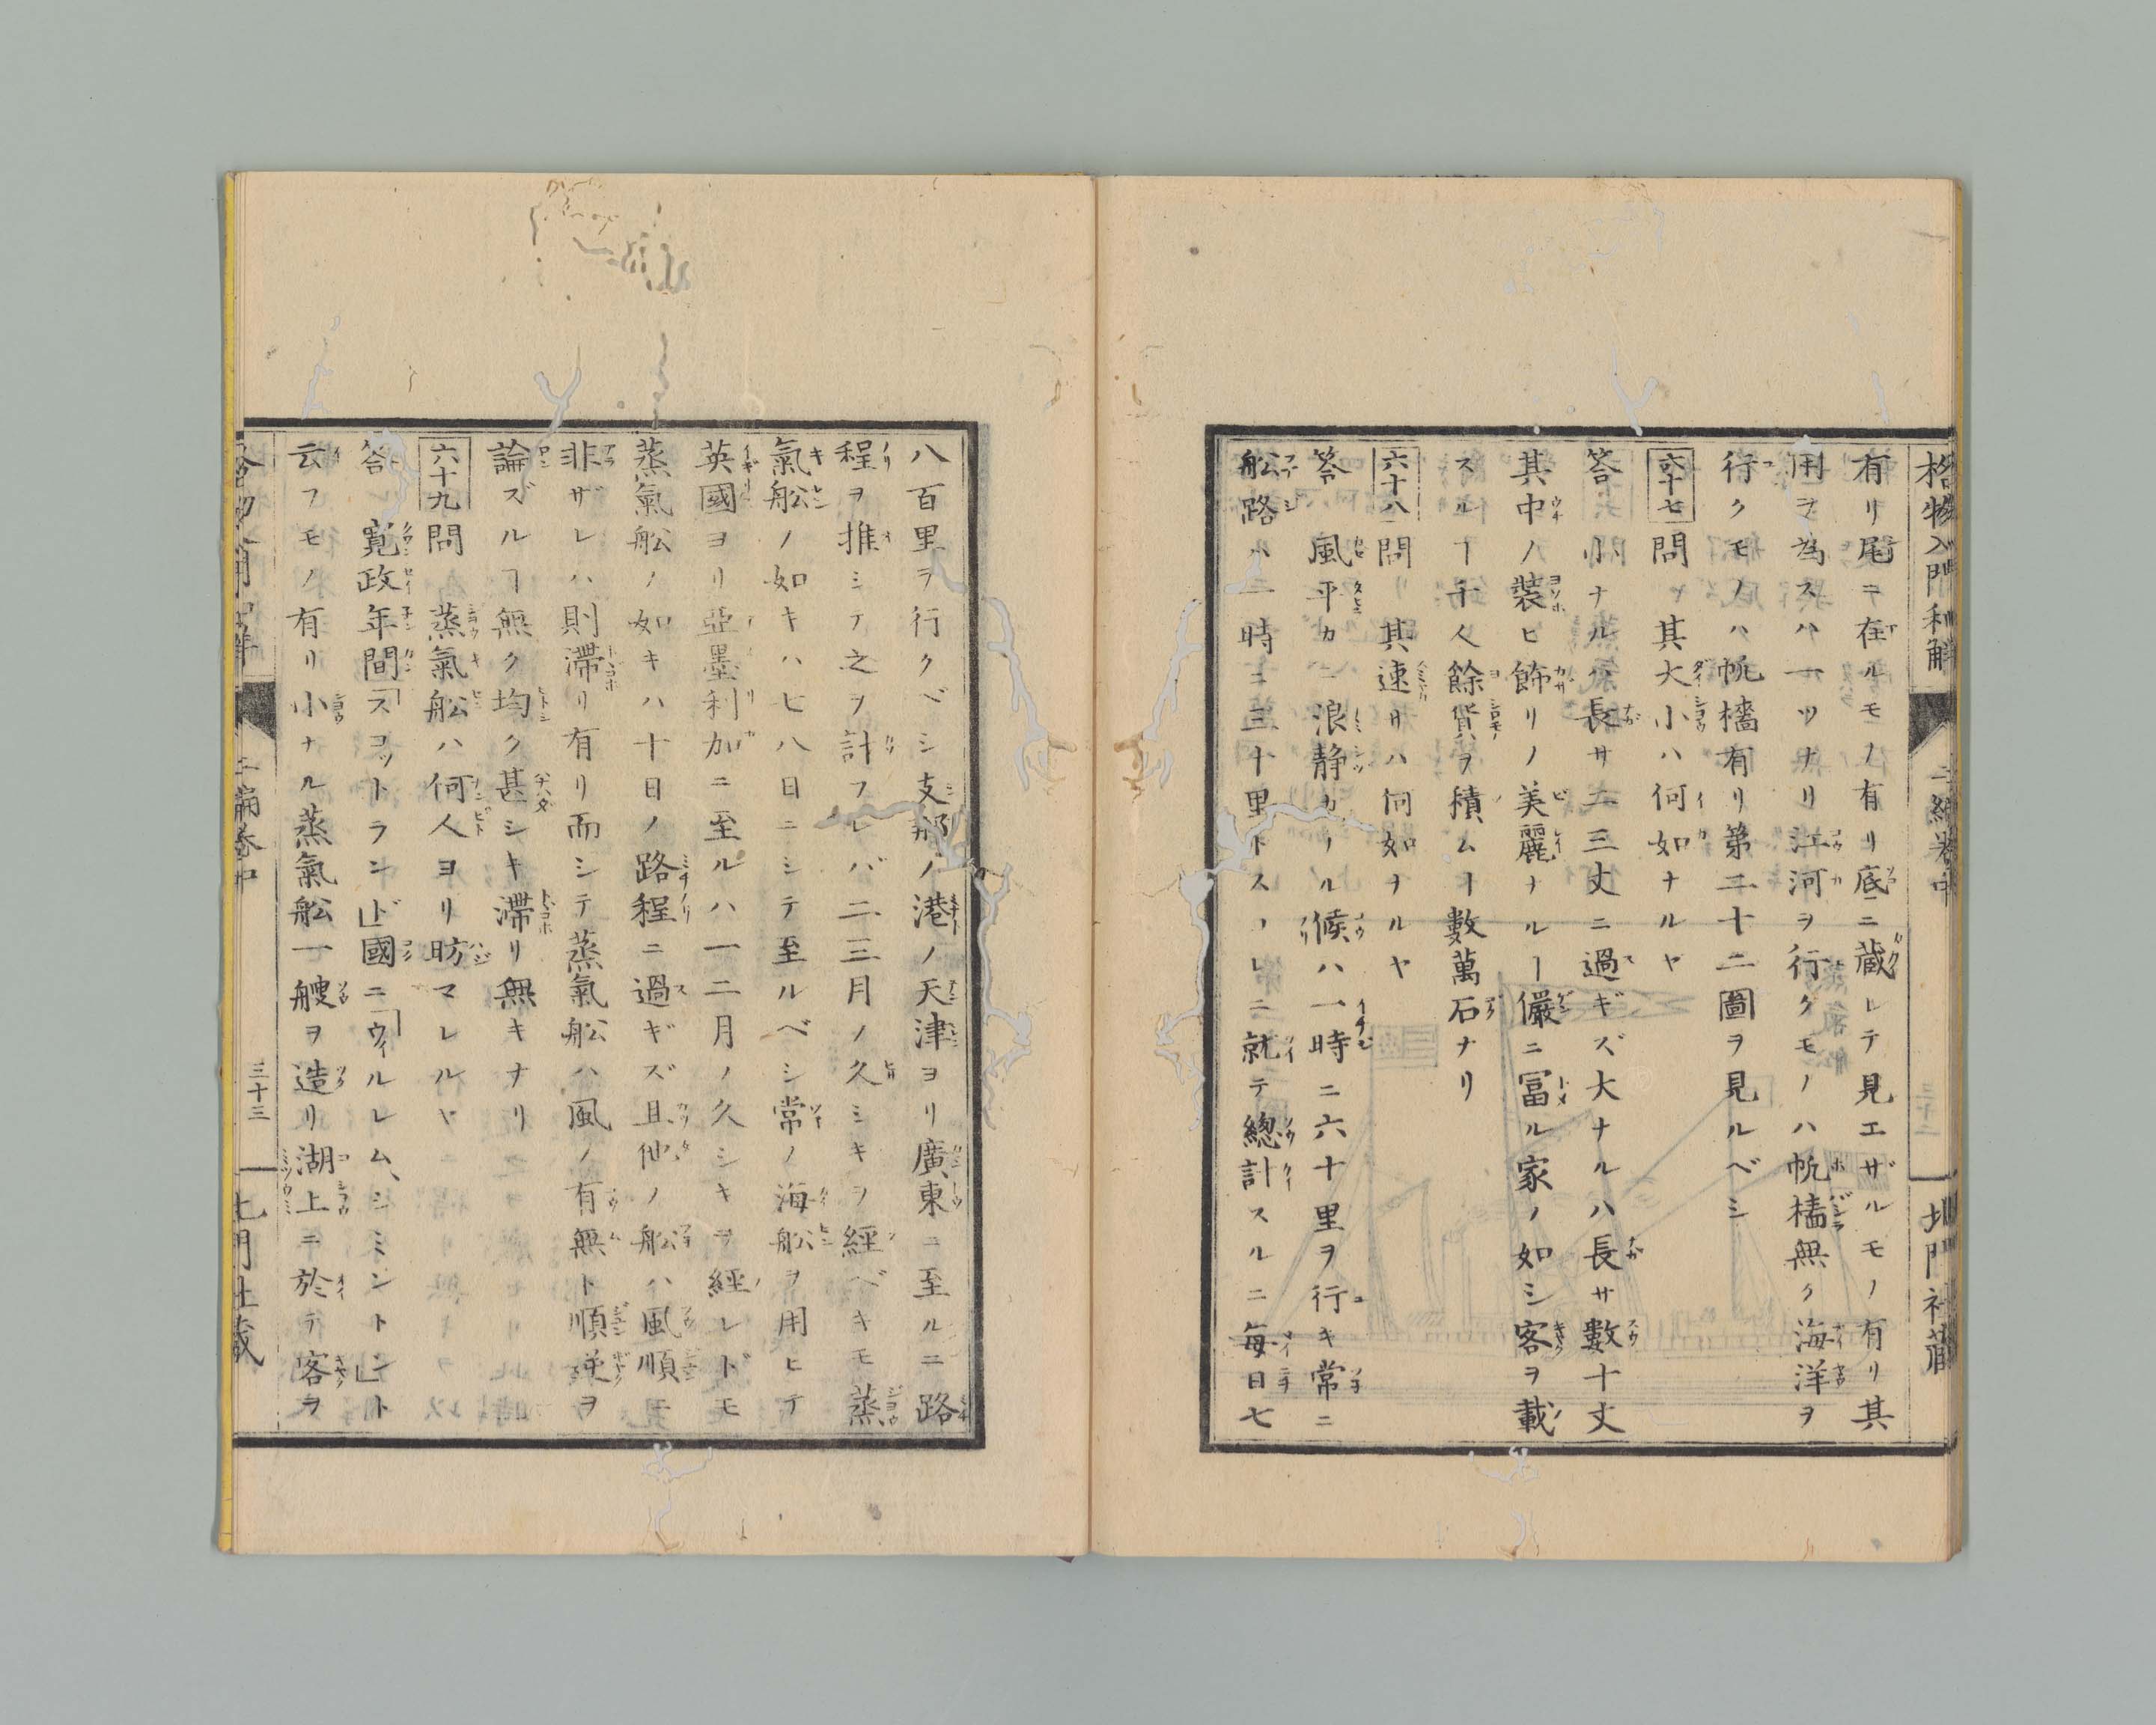 格物入門和解 二編卷中 北門社藏
有リ尾ニ在ルモノ有リ底ニ蔵レテ見エザルモノ有リ其
用ヲ為スハ一ツナリ江河ヲ行クモノハ帆檣無ク海洋ヲ
行クモノハ帆檣有リ第二十二圖ヲ見ルベシ
六十七問 其大小ハ何如ナルヤ
答 小ナルハ長サ二三丈ニ過ギズ大ナルハ長サ數十丈
其中ノ装ヒ飾リノ美麗ナルヿ儼ニ冨ル家ノ如シ客ヲ載
スルヿ千人餘貨ヲ積ムヿ數萬石ナリ
六十八問 其速サハ何如ナルヤ
答 風平カニ浪静カナル候ハ一時ニ六十里ヲ行キ常ニ
舩路ハ一時ニ三十里トス之レニ就テ總計スルニ每日七
八百里ヲ行クベシ支那ノ港ノ天津ヨリ廣東ニ至ルニ路
程ヲ推シテ之ヲ計フレバ二三月ノ久シキヲ經ベキモ蒸
氣舩ノ如キハ七八日ニシテ至ルベシ常ノ海舩ヲ用ヒテ
英國ヨリ亞墨利加ニ至ルハ一二月ノ久シキヲ經レドモ
蒸氣舩ノ如キハ十日ノ路程ニ過ギズ且他ノ舩ハ風順ニ
非ザレハ則滯リ有リ而シテ蒸氣舩ハ風ノ有無ト順逆ヲ
論ズルヿ無ク均ク甚シキ滯リ無キナリ
六十九問 蒸氣舩ハ何人ヨリ昉マレルヤ
答 寛政年間「スコットランド」國ニ「ウィルレム、シミントン」ト
云フモノ有リ小ナル蒸氣舩一艘ヲ造リ湖上ニ於テ客ヲ
格物入門和解 二編卷中 三十三 北門社藏